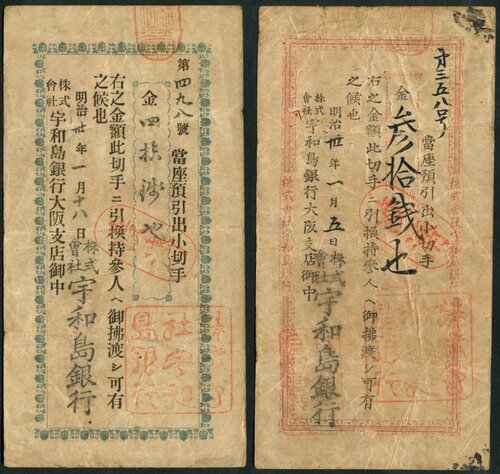 第四九八號 當座預引出小切手
金四拾錢也
右之金額此切手ニ引換持參人ヘ御拂渡シ可有
之候也
明治卅年一月十八日 株式會社宇和島銀行
株式會社宇和島銀行大阪支店御中
社宇和
島銀行
才三五八号
當座預引出小切手
金參拾錢也
右之金額此切手ニ引換持參人ヘ御拂渡シ可有
之候也
明治卅年一月五日 株式會社宇和島銀行
株式會社宇和島銀行大阪支店御中